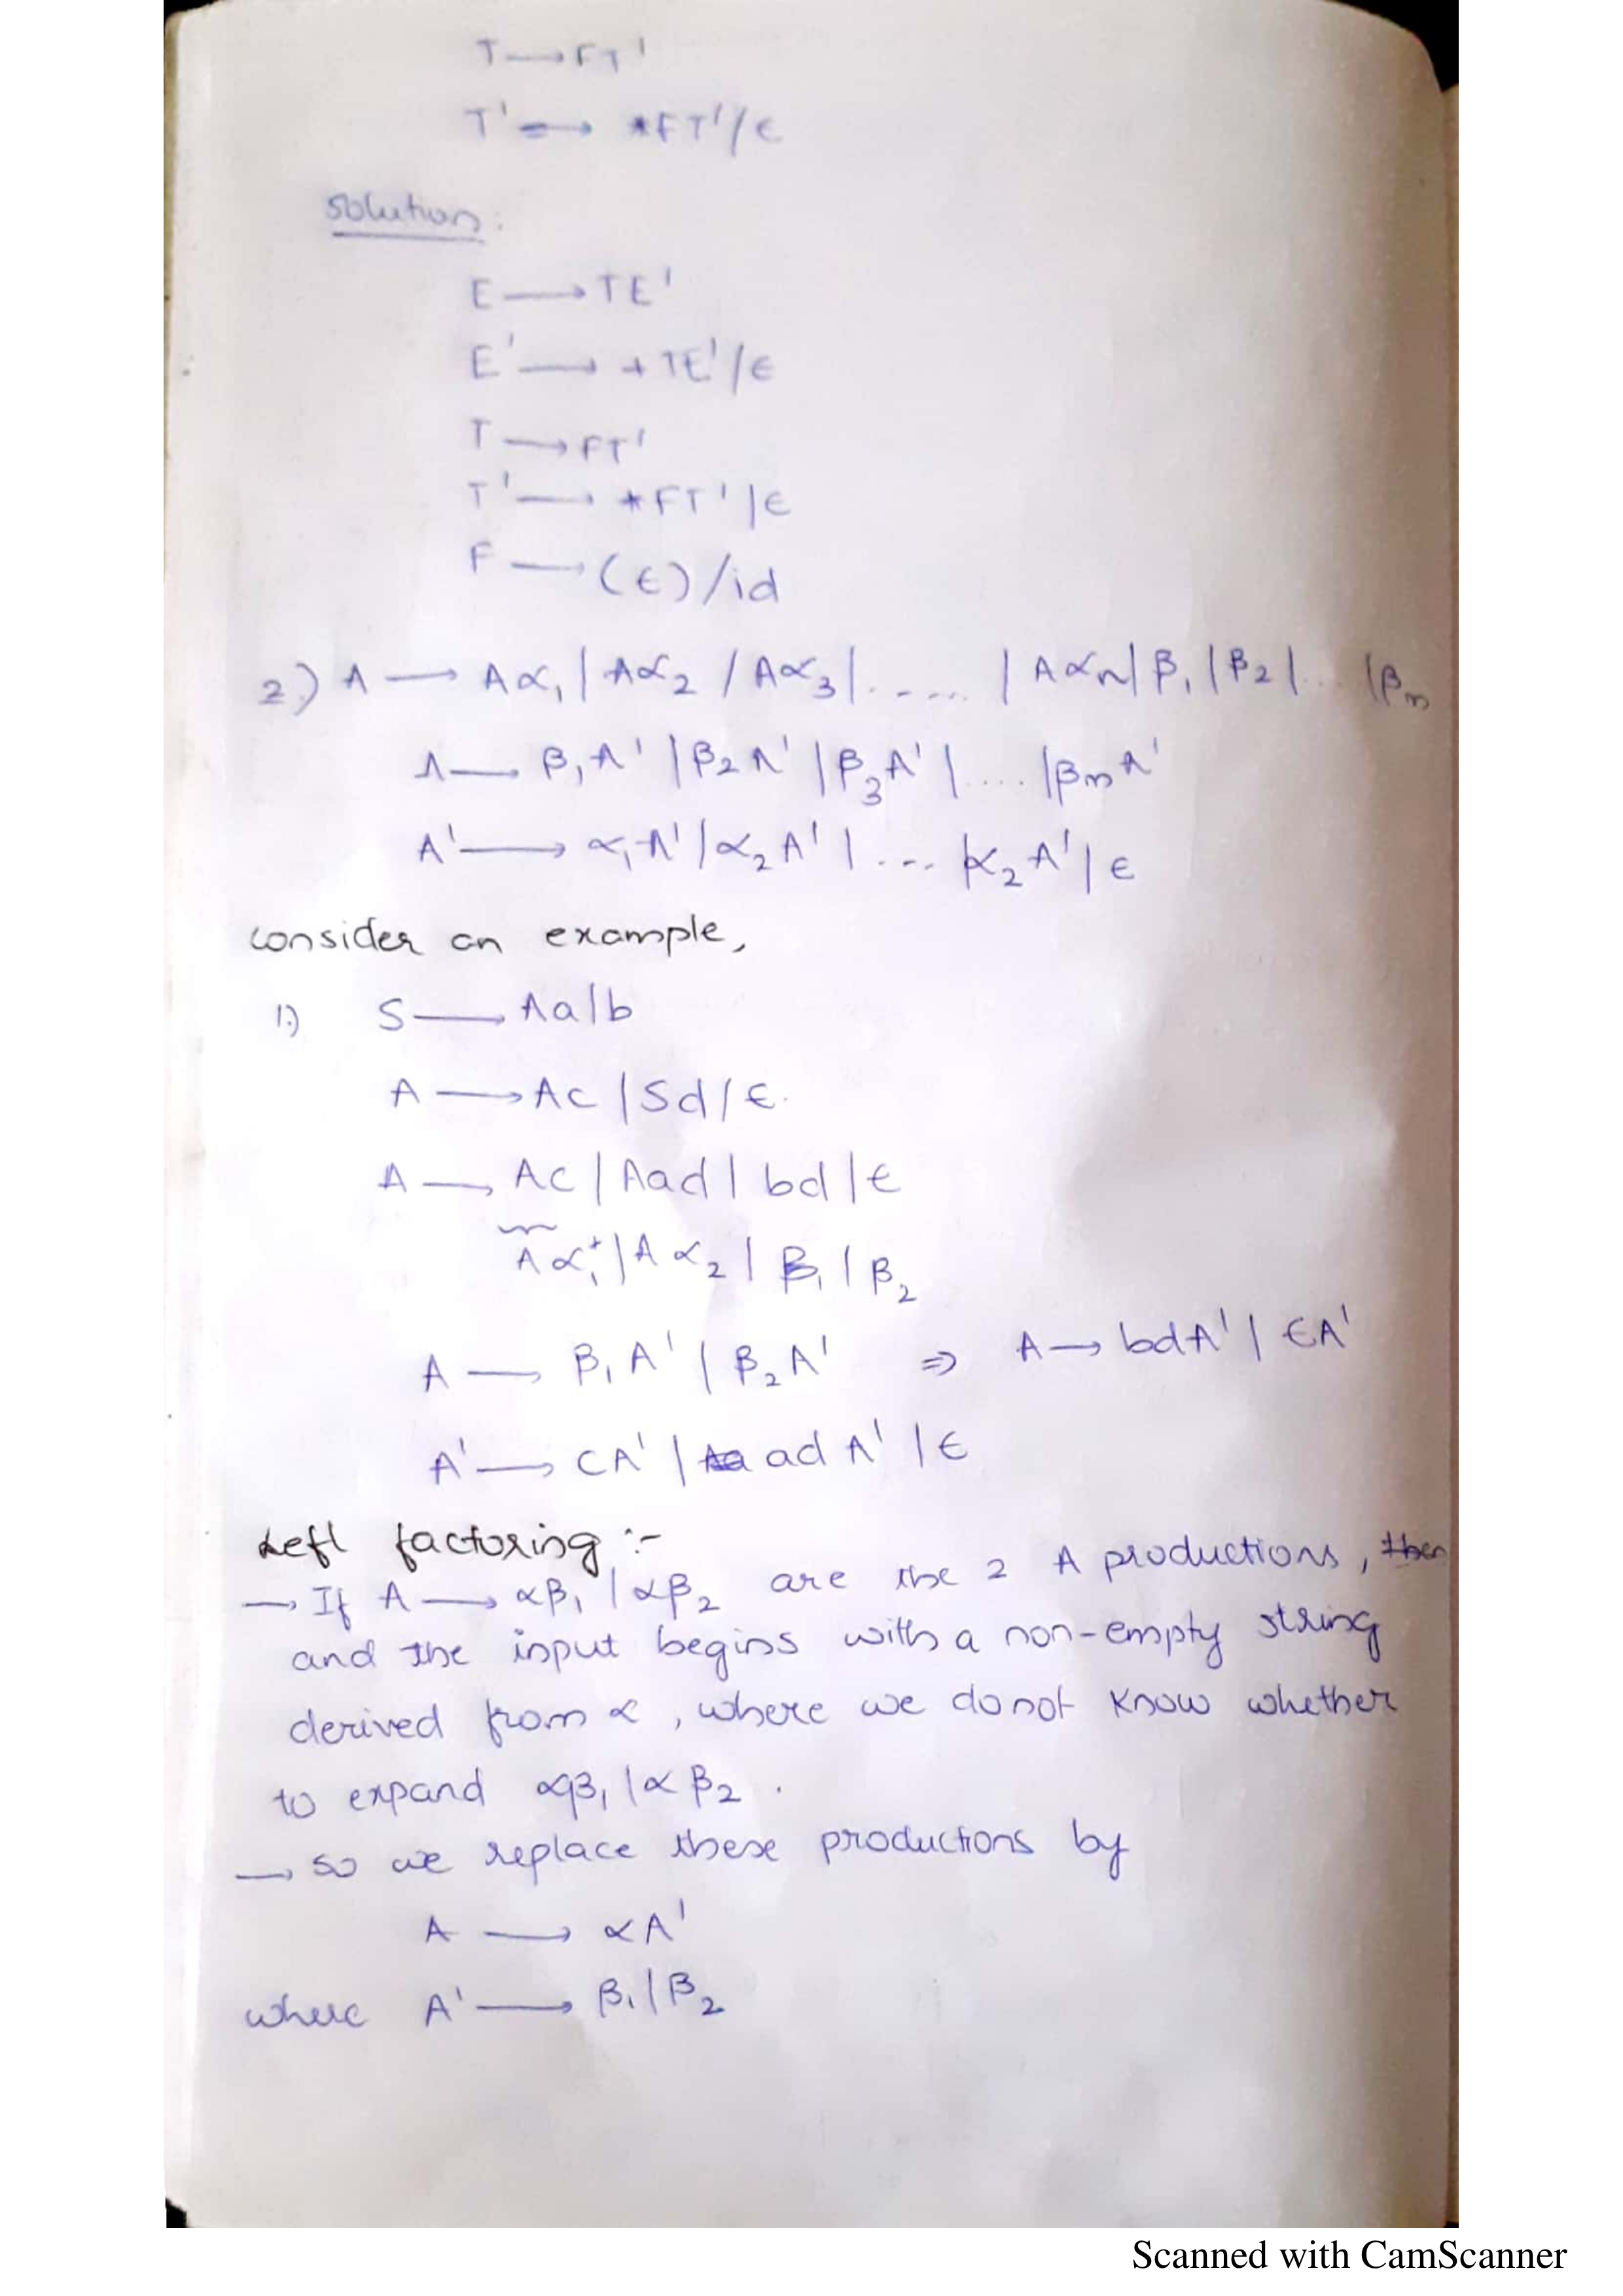 T → FT'
T' → *FT'/ϵ
Solution:
E → TE'
E' → +TE'/ϵ
T → FT'
T' → *FT'|ϵ
F → (ϵ)/id
2.) A → Aα₁|Aα₂/Aα₃|......|Aαₙ|β₁|β₂|...|βₘ
A → β₁A'|β₂A'|β₃A'|....|βₘA'
A' → α₁A'|α₂A'|....|α₂A'|ϵ
consider an example,
1.) S → Aa|b
A → Ac|Sd/ϵ.
A → Ac|Aad|bd|ϵ
Aα₁|Aα₂|β₁|β₂
A → β₁A'|β₂A' ⇒ A → bdA'|ϵA'
A' → CA'|adA'|ϵ
Left factoring :-
→ If A → αβ₁|αβ₂ are the 2 A productions, then
and the input begins with a non-empty string
derived from α, where we do not know whether
to expand αβ₁|αβ₂.
→ so we replace these productions by
A → αA'
where A' → β₁|β₂
Scanned with CamScanner